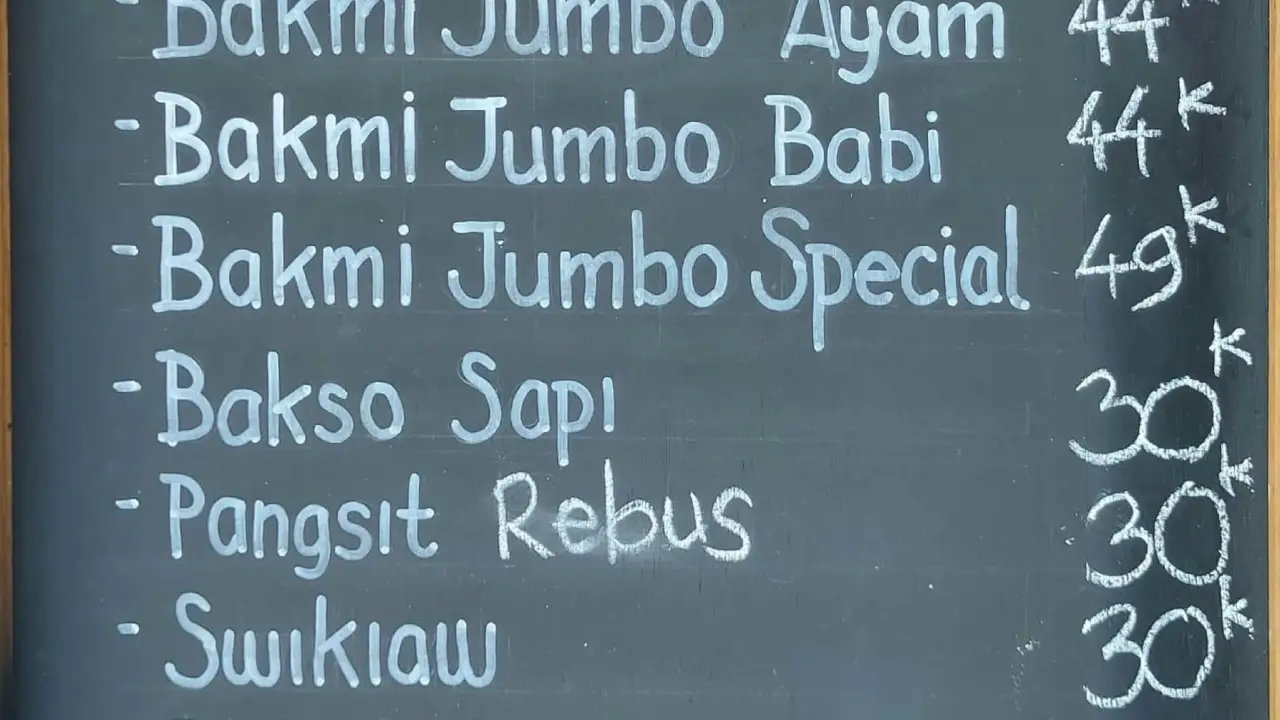 - Bakmi Jumbo Ayam 44K
- Bakmi Jumbo Babi 44K
- Bakmi Jumbo Special 49K
- Bakso Sapi 30K
- Pangsit Rebus 30K
- Swikiaw 30K